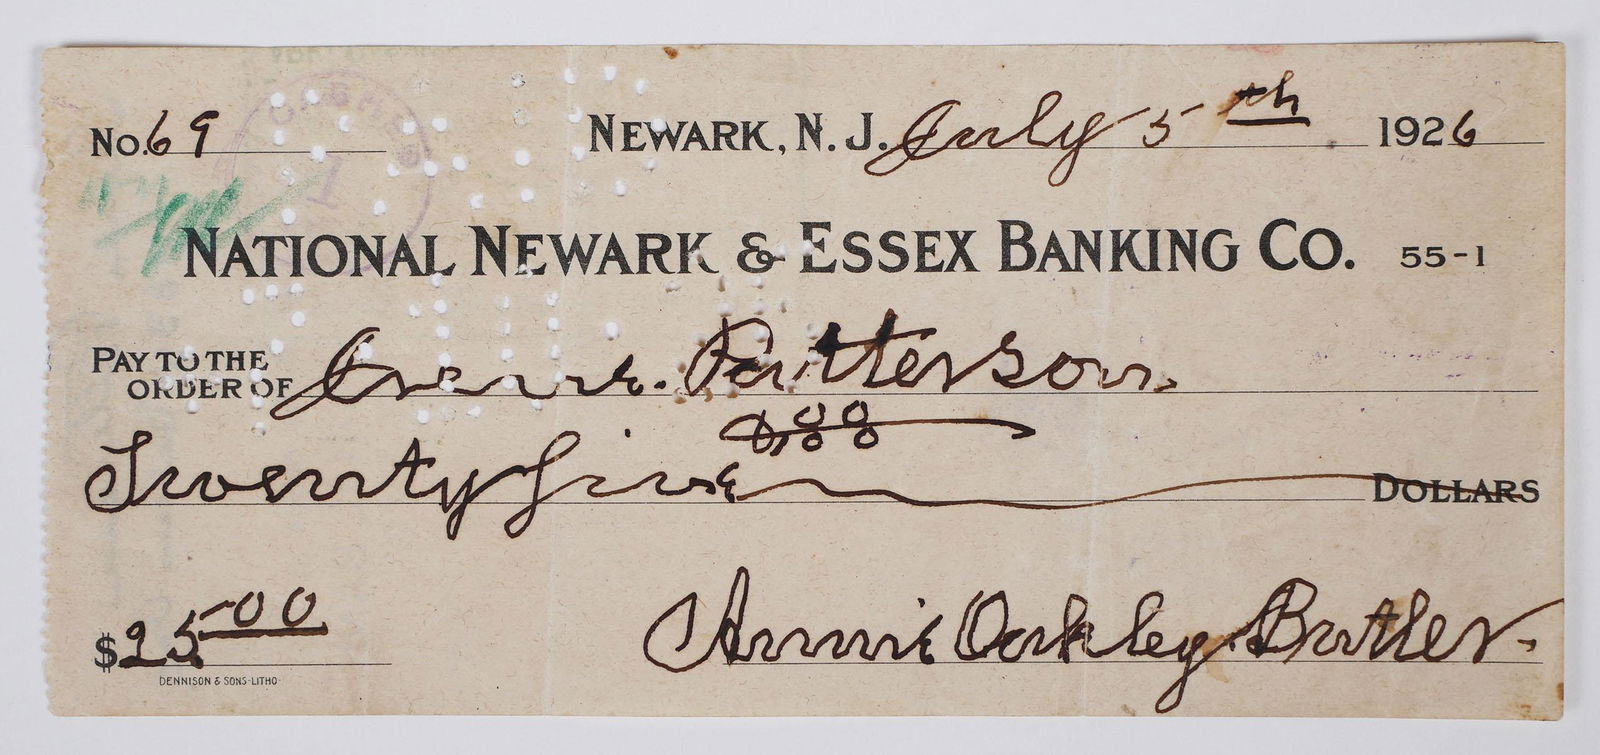 No. 69 NEWARK, N. J. July 5th 1926
NATIONAL NEWARK & ESSEX BANKING CO. 55-1
PAY TO THE
ORDER OF Irene. Patterson.
Twenty five DOLLARS
$25.00 Annie Oakley. Butler.
DENNISON & SONS-LITHO